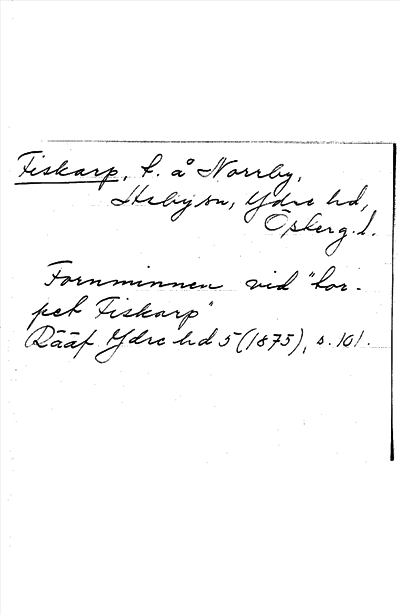 Fiskarp, t. å Norrby,
Asby sn, Ydre hd,
Österg. l.
Fornminnen vid "tor-
pet Fiskarp"
Rääf Ydre hd 5 (1875), s. 101.